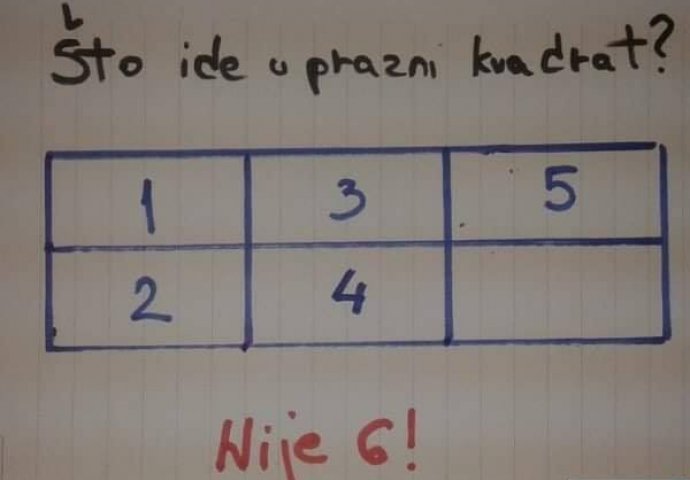 Što ide u prazni kvadrat?
1 3 5
2 4
Nije 6!